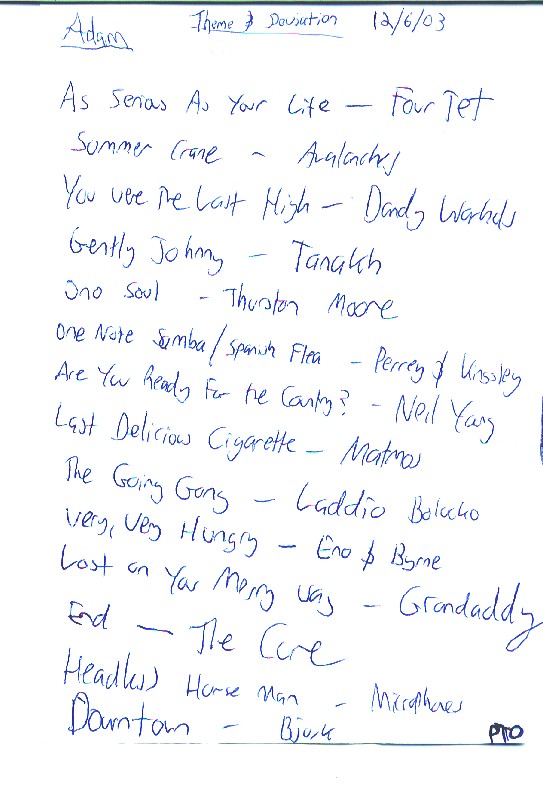 Adam Theme & Deviation 12/6/03
As Serious As Your Life – Four Tet
Summer Crane – Avalanches
You were the Last High – Dandy Warhols
Gently Johnny – Tanakh
Ono Soul – Thurston Moore
One Note Samba / Spanish Flea – Perrey & Kingsley
Are You Ready For the Country? – Neil Young
Last Delicious Cigarette – Matmos
The Going Gong – Laddio Bolocko
Very, Very Hungry – Eno & Byrne
Lost on Your Merry Way – Grandaddy
End – The Cure
Headless Horse Man – Microphones
Downtown – Bjork
PTO